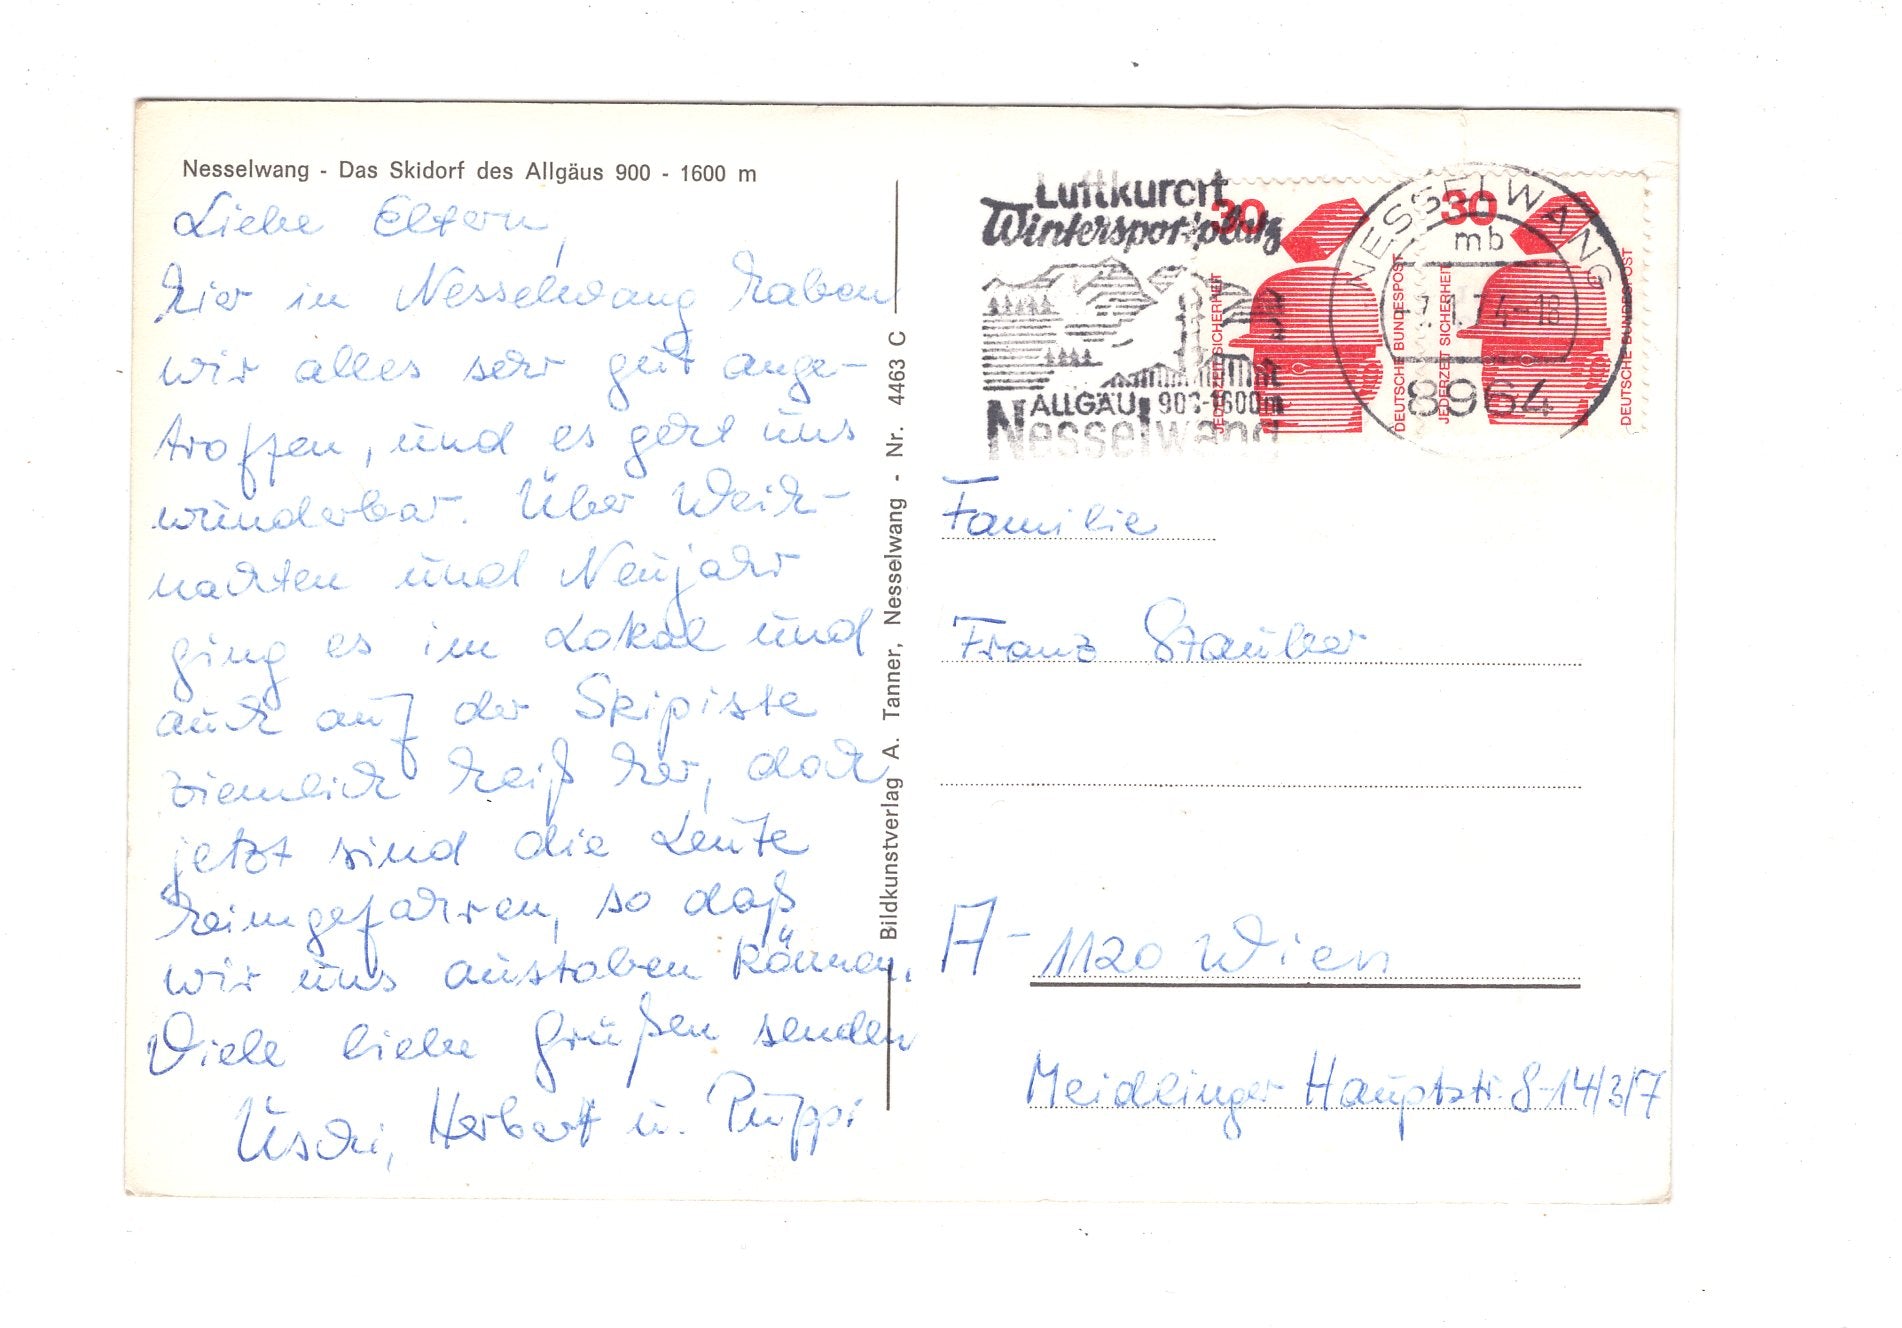 Nesselwang - Das Skidorf des Allgäus 900 - 1600 m
Liebe Eltern,
hier in Nesselwang haben
wir alles sehr gut ange-
troffen, und es geht uns
wunderbar. Über Weih-
nachten und Neujahr
ging es im Lokal und
auch auf der Skipiste
ziemlich heiß her, doch
jetzt sind die Leute
heimgefahren, so daß
wir uns austoben können.
Viele liebe Grüßen senden
Uschi, Herbert u. Puppi
Bildkunstverlag A. Tanner, Nesselwang - Nr. 4463 C
Luftkurort
Wintersportplatz
ALLGÄU 900-1600m
Nesselwang
30
JEDERZEIT SICHERHEIT
DEUTSCHE BUNDESPOST
30
JEDERZEIT SICHERHEIT
DEUTSCHE BUNDESPOST
NESSELWANG
mb
74-18
8964
Familie
Franz Stauber
A-1120 Wien
Meidlinger Hauptstr. 8-14/3/7